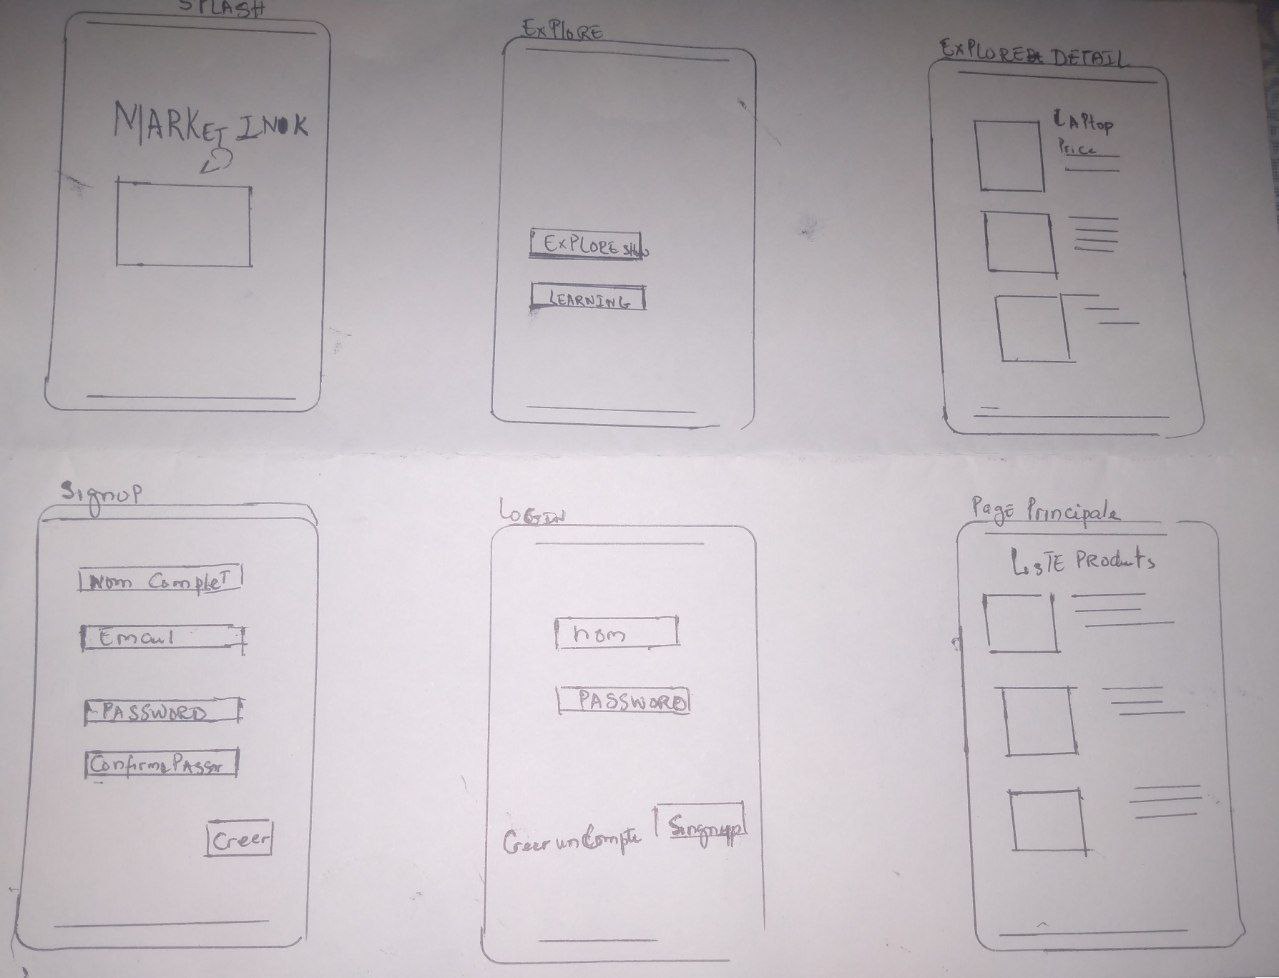 SPLASH
MARKET INOK
EXPLORE
EXPLORE
LEARNING
EXPLORE DETAIL
LAPtop
Price
SignUP
Nom CompleT
Email
PASSWORD
Confirme Passw
Creer
LOGIN
nom
PASSWORD
Creer un Compte
Singnupp
Page Principale
LisTE PRoducts